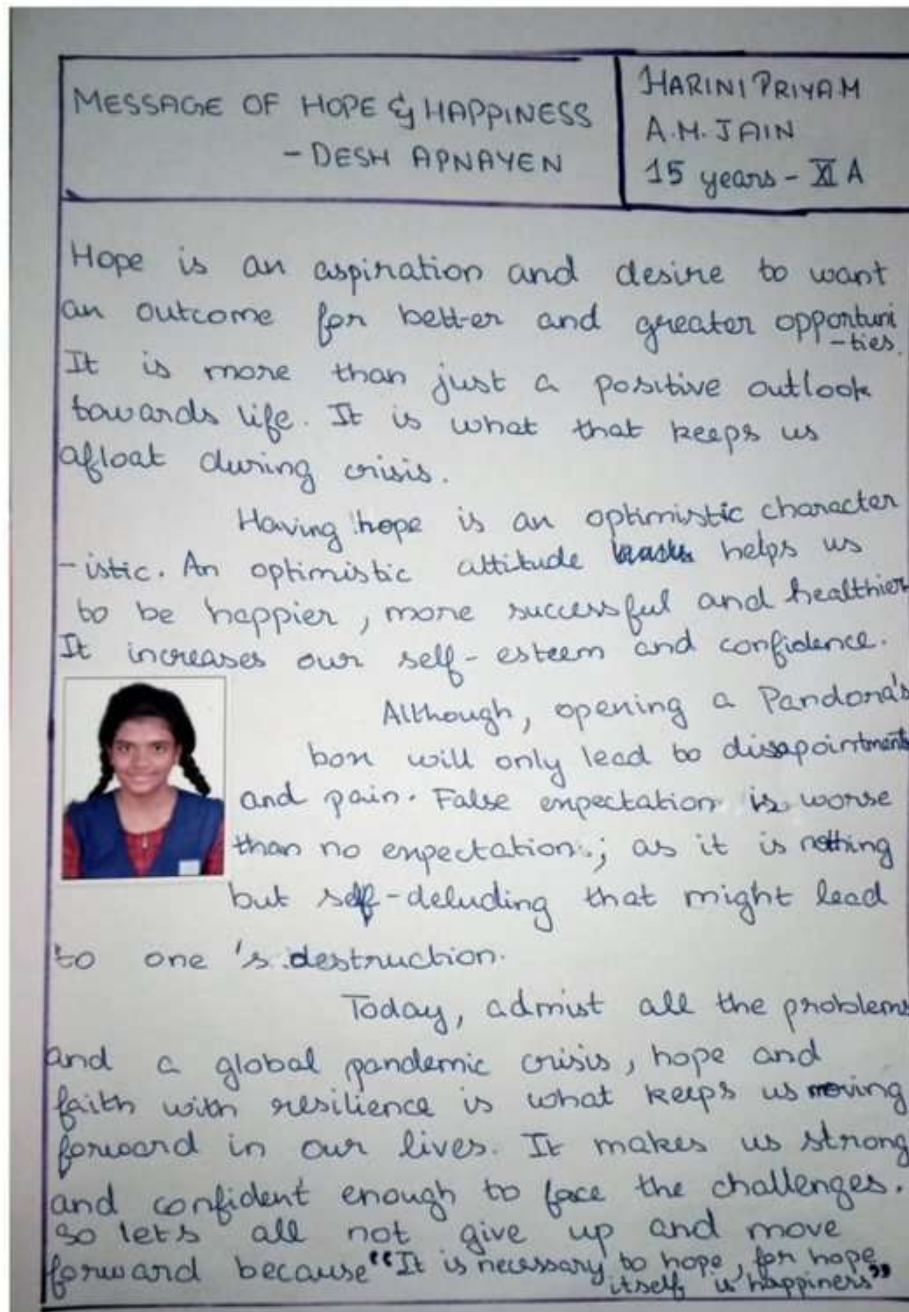 MESSAGE OF HOPE & HAPPINESS
- DESH APNAYEN
HARINI PRIYA M
A.M. JAIN
15 years - XI A
Hope is an aspiration and desire to want
an outcome for better and greater opportuni
-ties.
It is more than just a positive outlook
towards life. It is what that keeps us
afloat during crisis.
Having hope is an optimistic character
-istic. An optimistic attitude helps us
to be happier, more successful and healthier
It increases our self-esteem and confidence.
Although, opening a Pandora's
box will only lead to disapointments
and pain. False expectation is worse
than no expectation; as it is nothing
but self-deluding that might lead
to one's destruction.
Today, admist all the problems
and a global pandemic crisis, hope and
faith with resilience is what keeps us moving
forward in our lives. It makes us strong
and confident enough to face the challenges.
so let's all not give up and move
forward because "It is necessary to hope, for hope
itself is happiness"